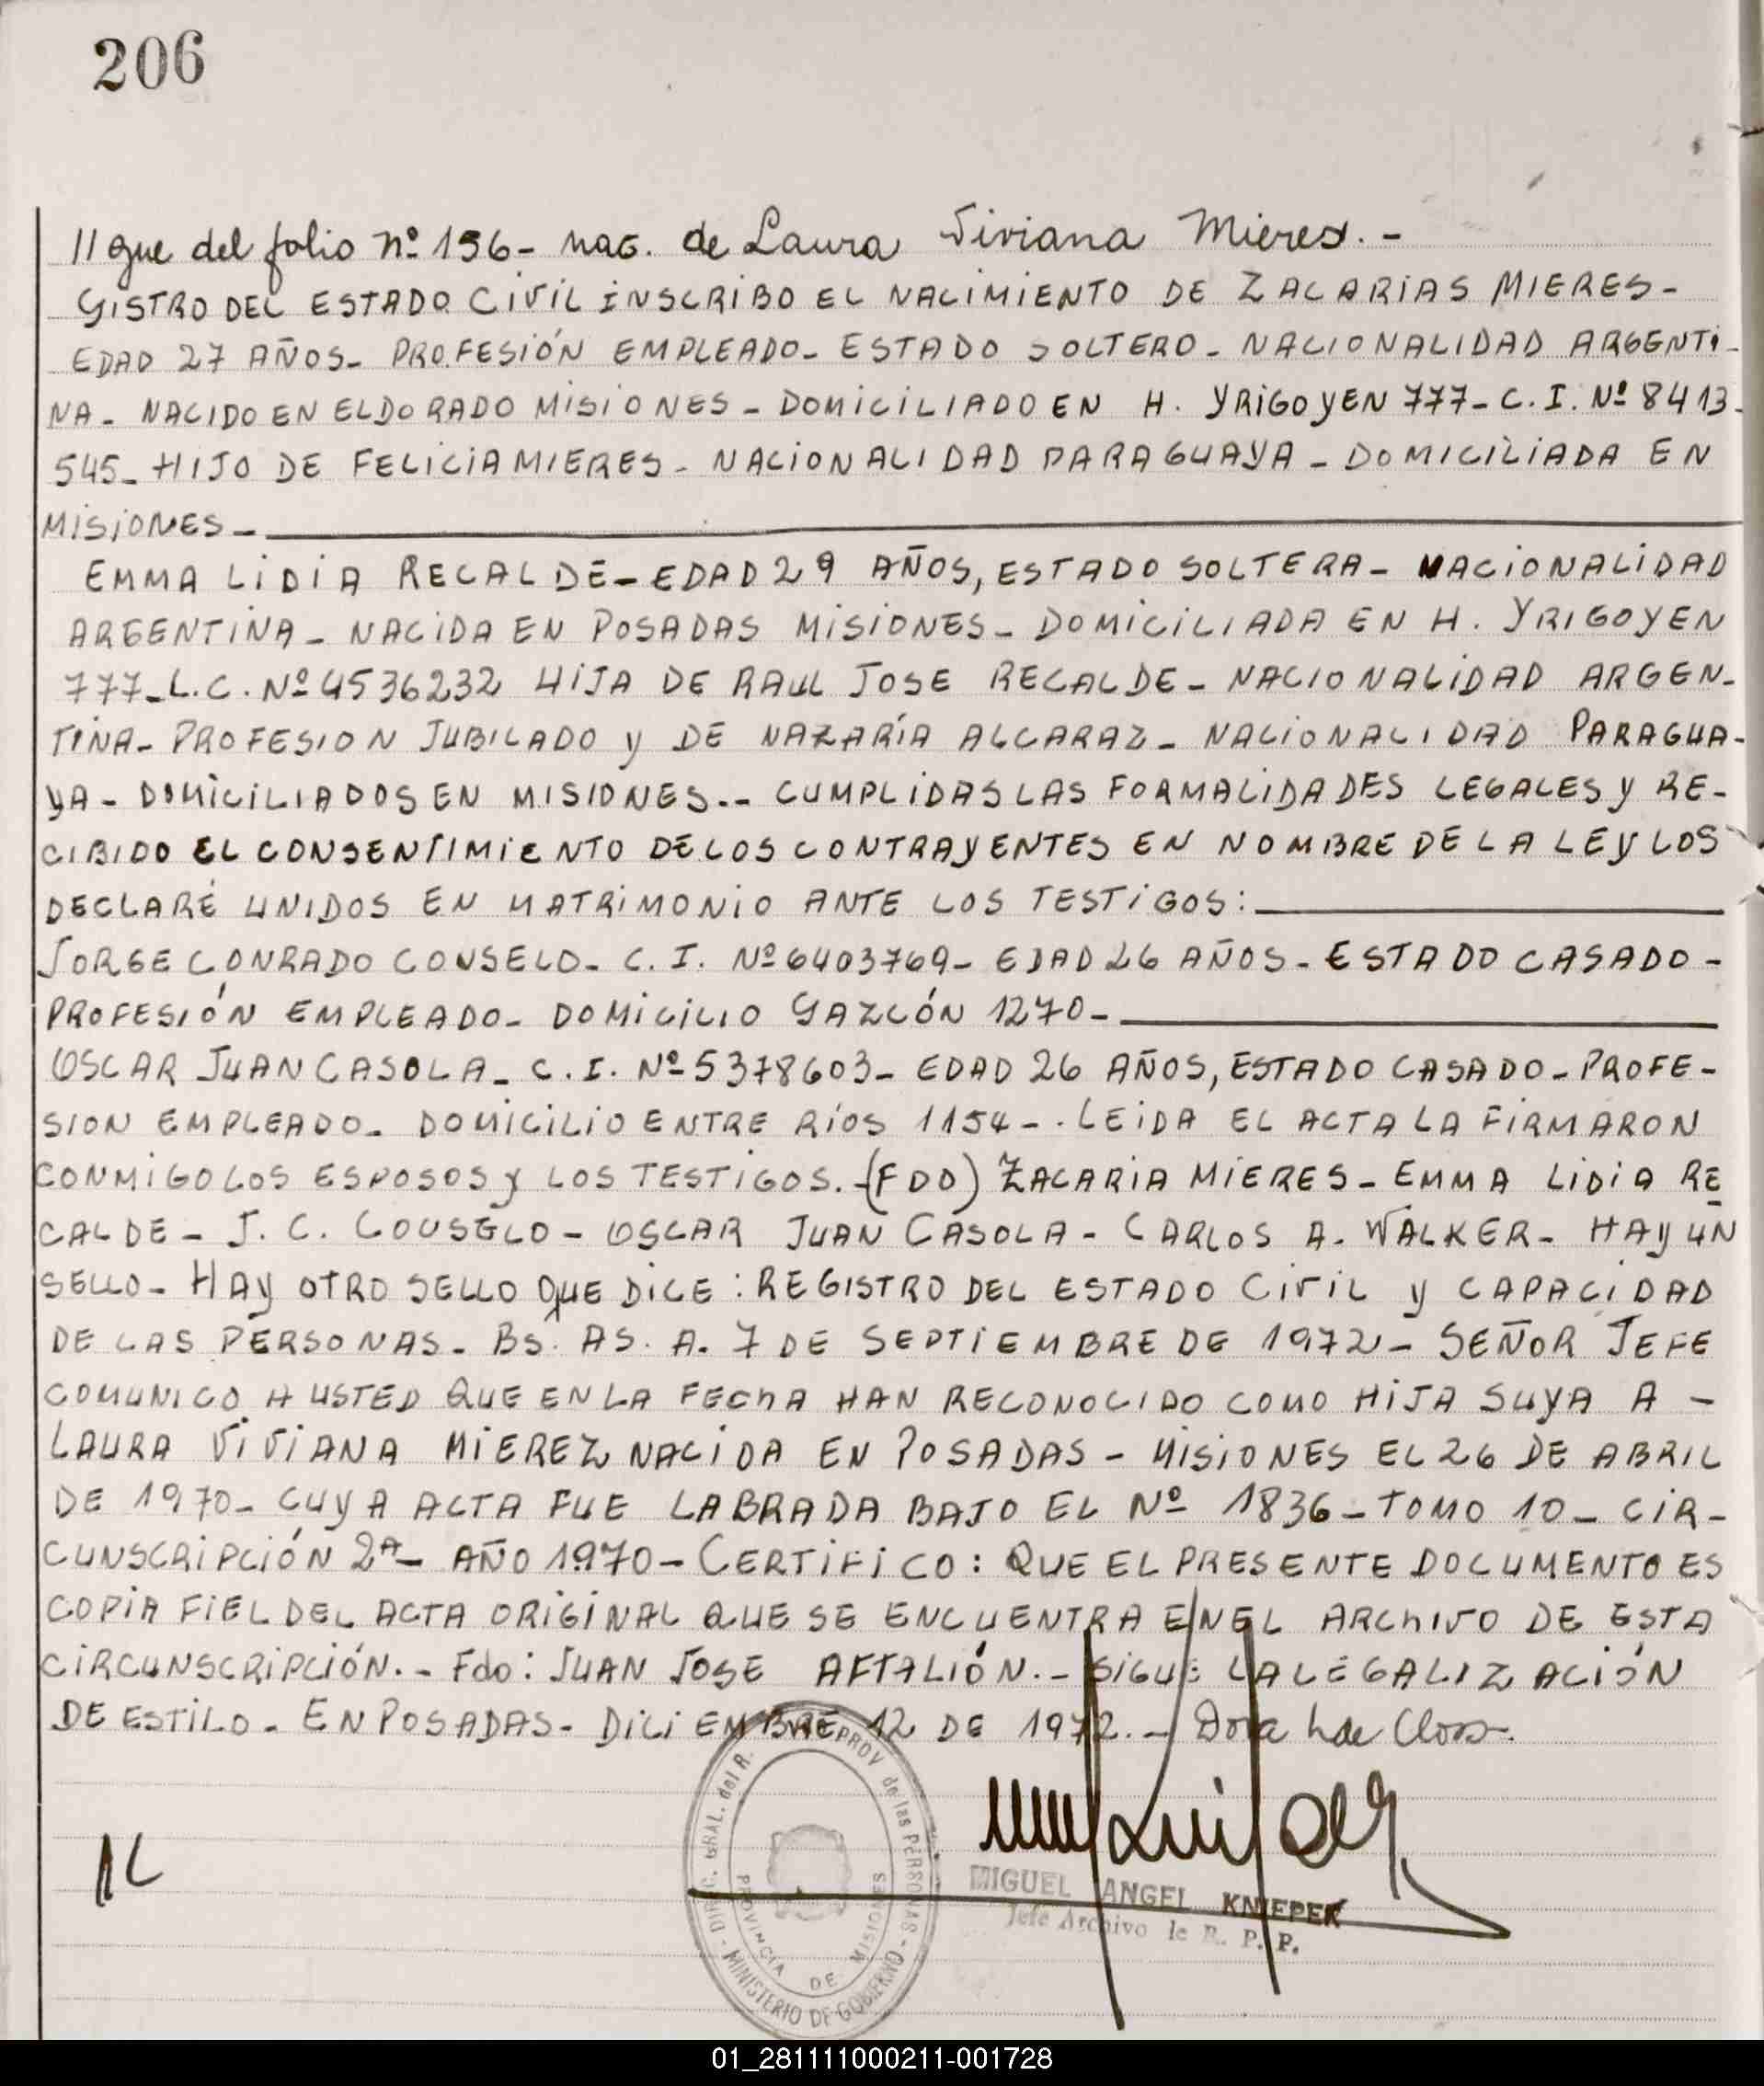 206
//gue del folio nº 196- nac. de Laura Viviana Mieres.-
GISTRO DEL ESTADO CIVIL INSCRIBO EL NACIMIENTO DE ZACARIAS MIERES-
EDAD 27 AÑOS- PROFESIÓN EMPLEADO- ESTADO SOLTERO- NACIONALIDAD ARGENTI-
NA- NACIDO EN ELDORADO MISIONES- DOMICILIADO EN H. YRIGOYEN 777- C.I. Nº 8413-
545- HIJO DE FELICIA MIERES- NACIONALIDAD PARAGUAYA- DOMICILIADA EN
MISIONES-
EMMA LIDIA RECALDE- EDAD 29 AÑOS, ESTADO SOLTERA- NACIONALIDAD
ARGENTINA- NACIDA EN POSADAS MISIONES- DOMICILIADA EN H. YRIGOYEN
777- L.C. Nº 4536232 HIJA DE RAUL JOSE RECALDE- NACIONALIDAD ARGEN-
TINA- PROFESION JUBILADO y DE NAZARÍA ALCARAZ- NACIONALIDAD PARAGUA-
YA- DOMICILIADOS EN MISIONES.-- CUMPLIDAS LAS FORMALIDADES LEGALES y RE-
CIBIDO EL CONSENTIMIENTO DE LOS CONTRAYENTES EN NOMBRE DE LA LEY LOS
DECLARÉ UNIDOS EN MATRIMONIO ANTE LOS TESTIGOS:
JORGE CONRADO COUSELO- C.I. Nº 6403769- EDAD 26 AÑOS- ESTADO CASADO-
PROFESIÓN EMPLEADO- DOMICILIO GAZCÓN 1270-
OSCAR JUAN CASOLA- C.I. Nº 5378603- EDAD 26 AÑOS, ESTADO CASADO- PROFE-
SION EMPLEADO- DOMICILIO ENTRE RÍOS 1154-. LEIDA EL ACTA LA FIRMARON
CONMIGO LOS ESPOSOS y LOS TESTIGOS.-(FDO) ZACARIA MIERES- EMMA LIDIA RE
CALDE- J. C. COUSELO- OSCAR JUAN CASOLA- CARLOS A. WALKER- HAY UN
SELLO- HAY OTRO SELLO QUE DICE: REGISTRO DEL ESTADO CIVIL y CAPACIDAD
DE LAS PERSONAS- BS. AS. A. 7 DE SEPTIEMBRE DE 1972- SEÑOR JEFE
COMUNICO A USTED QUE EN LA FECHA HAN RECONOCIDO COMO HIJA SUYA A -
LAURA VIVIANA MIEREZ NACIDA EN POSADAS- MISIONES EL 26 DE ABRIL
DE 1970- CUYA ACTA FUE LABRADA BAJO EL Nº 1836- TOMO 10- CIR-
CUNSCRIPCIÓN 2ª- AÑO 1970- CERTIFICO: QUE EL PRESENTE DOCUMENTO ES
COPIA FIEL DEL ACTA ORIGINAL QUE SE ENCUENTRA EN EL ARCHIVO DE ESTA
CIRCUNSCRIPCIÓN.- Fdo: JUAN JOSE AFTALIÓN.- SIGUE LA LEGALIZACIÓN
DE ESTILO- EN POSADAS- DICIEMBRE 12 DE 1972.- Dora h de Closs-.
DIREC. GRAL. del R. PROV de las PERSONAS - MINISTERIO DE GOBIERNO -
PROVINCIA DE MISIONES
MIGUEL ANGEL KNIEPER
Jefe Archivo de R. P. P.
01_281111000211-001728